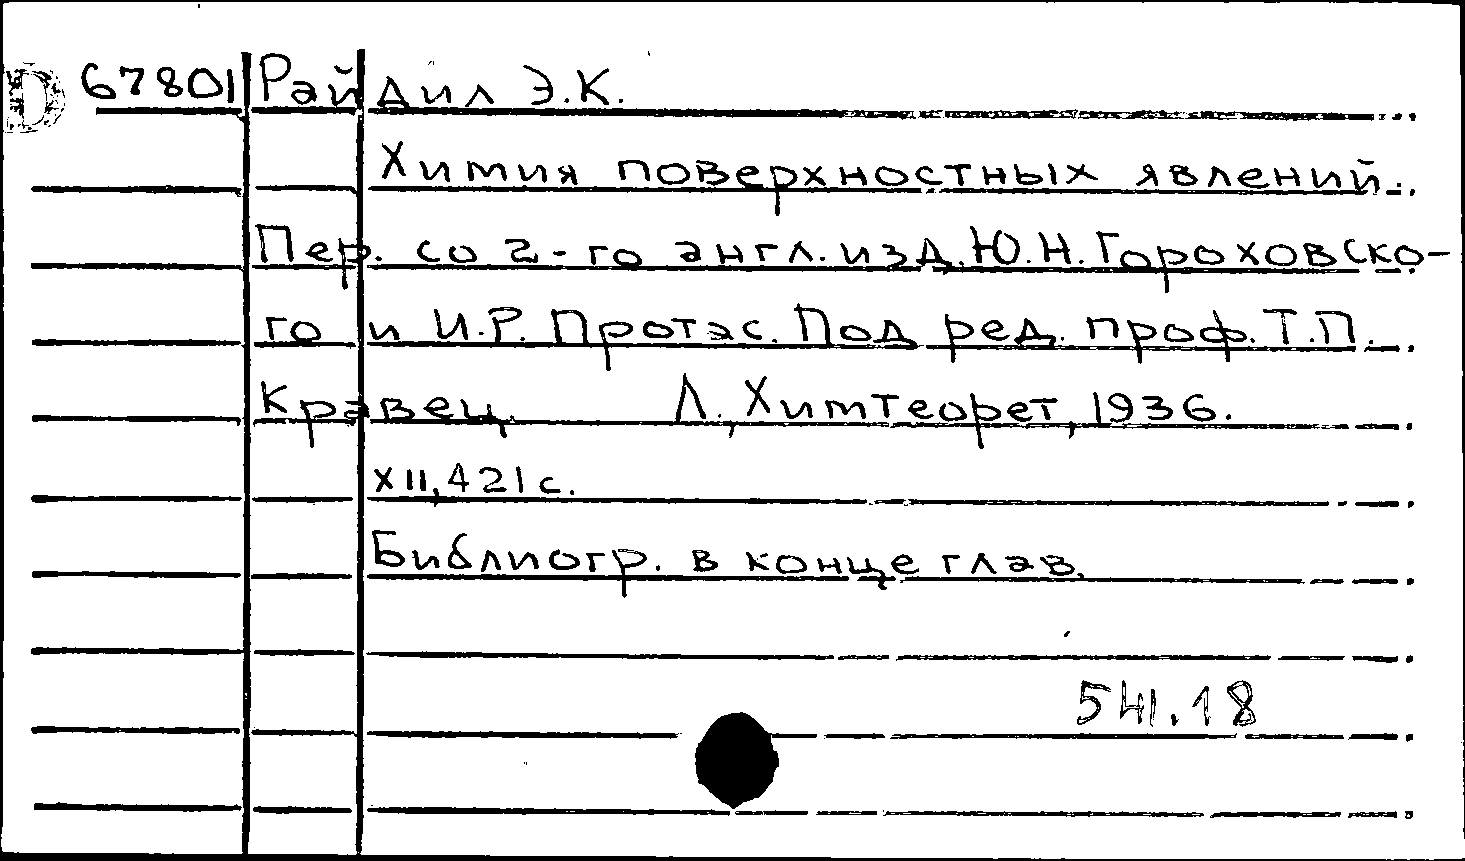 D 67801 Райдил Э.К.
Химия поверхностных явлений.
Пер. со 2-го англ. изд. Ю.Н. Гороховско-
го и И.Р. Протас. Под ред. проф. Т.П.
Кравец. Л., Химтеорет, 1936.
XII, 421 с.
Библиогр. в конце глав.
541.18